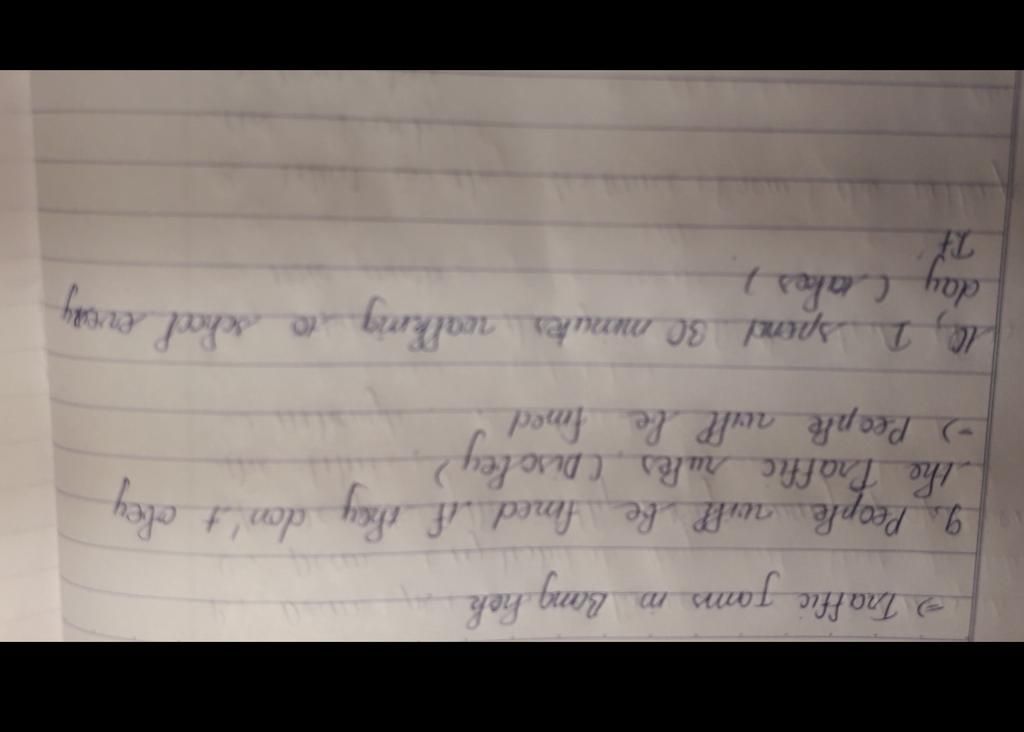 => Traffic jams in Bang kok
9. People will be fined if they don't obey
the Traffic rules (Disobey)
-> People will be fined
10, I spend 30 minutes walking to school every
day (takes)
It